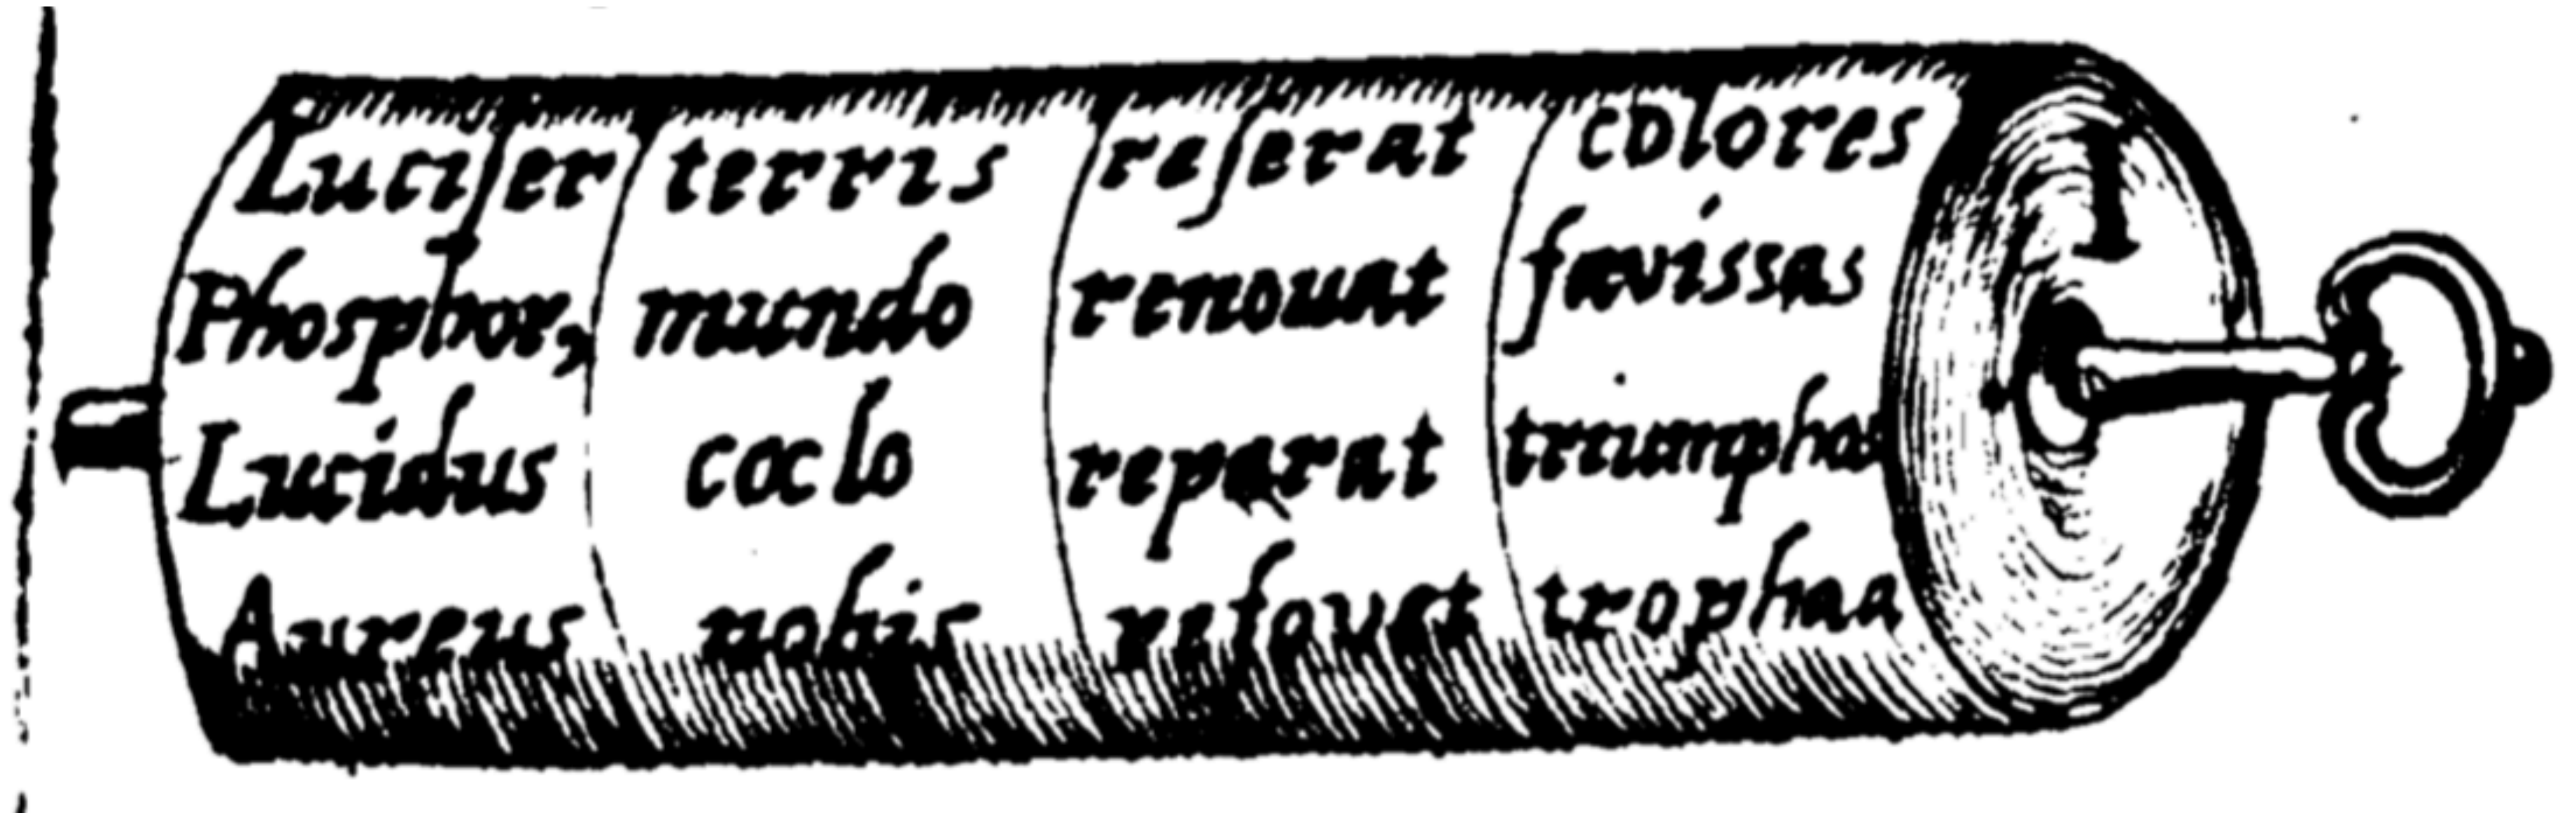 Lucifer terris reserat colores I
Phosphor, mundo renouat favissas
Lucidus coelo reparat triumphos
Aureus nobis refouet trophaa